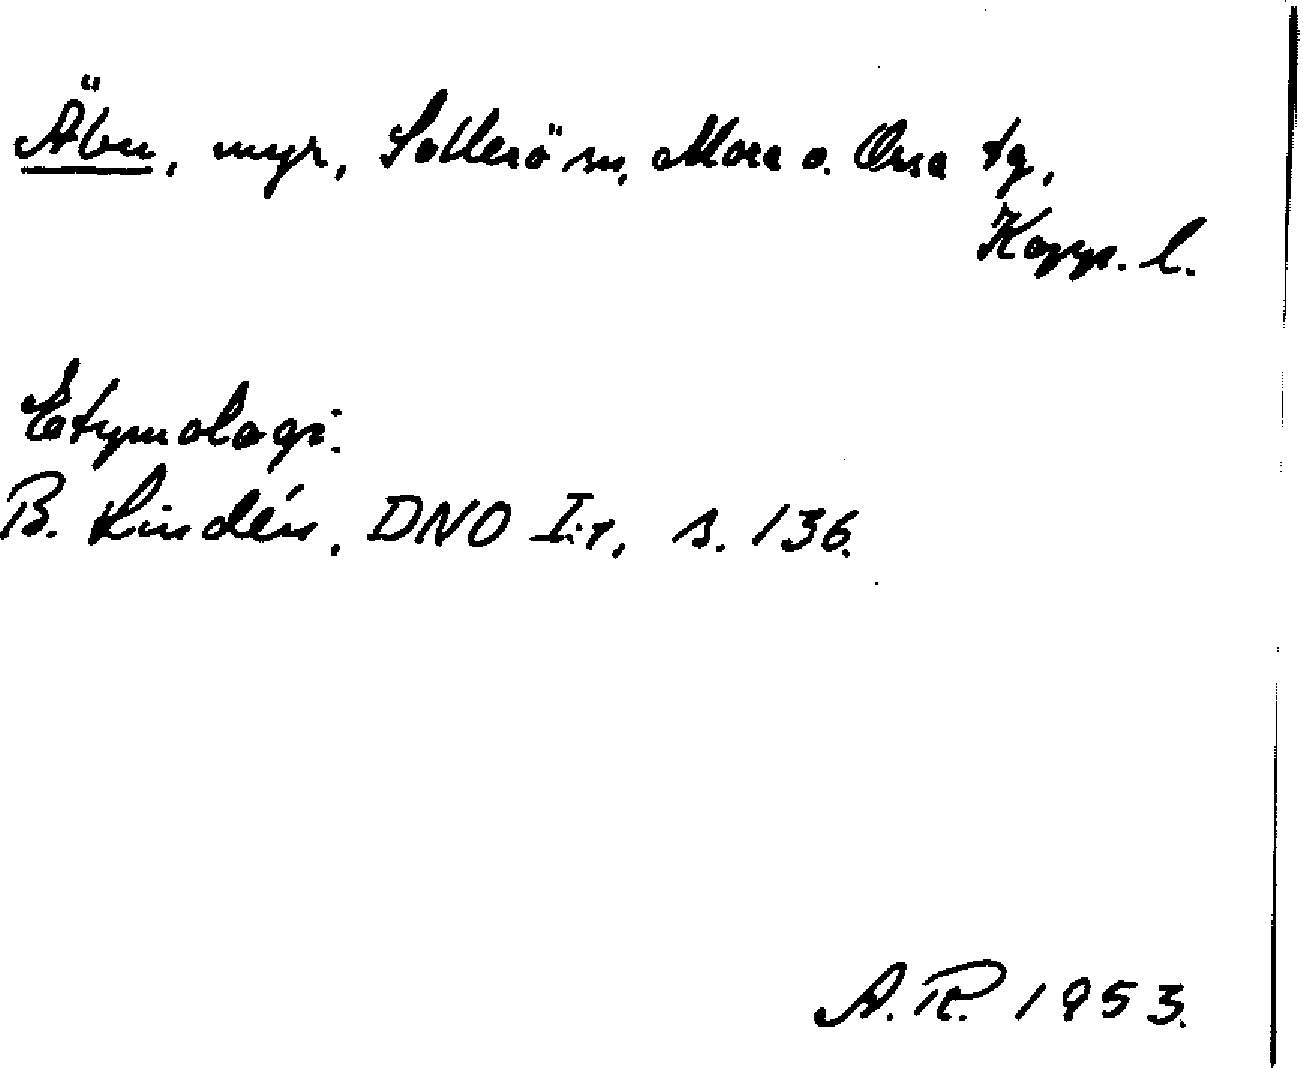 Äbu, myr, Sollerö sn, Mora o. Orsa tg,
Kopp. l.
Etymologi:
B. Lindén, DNO I:1, s. 136.
A.R. 1953.